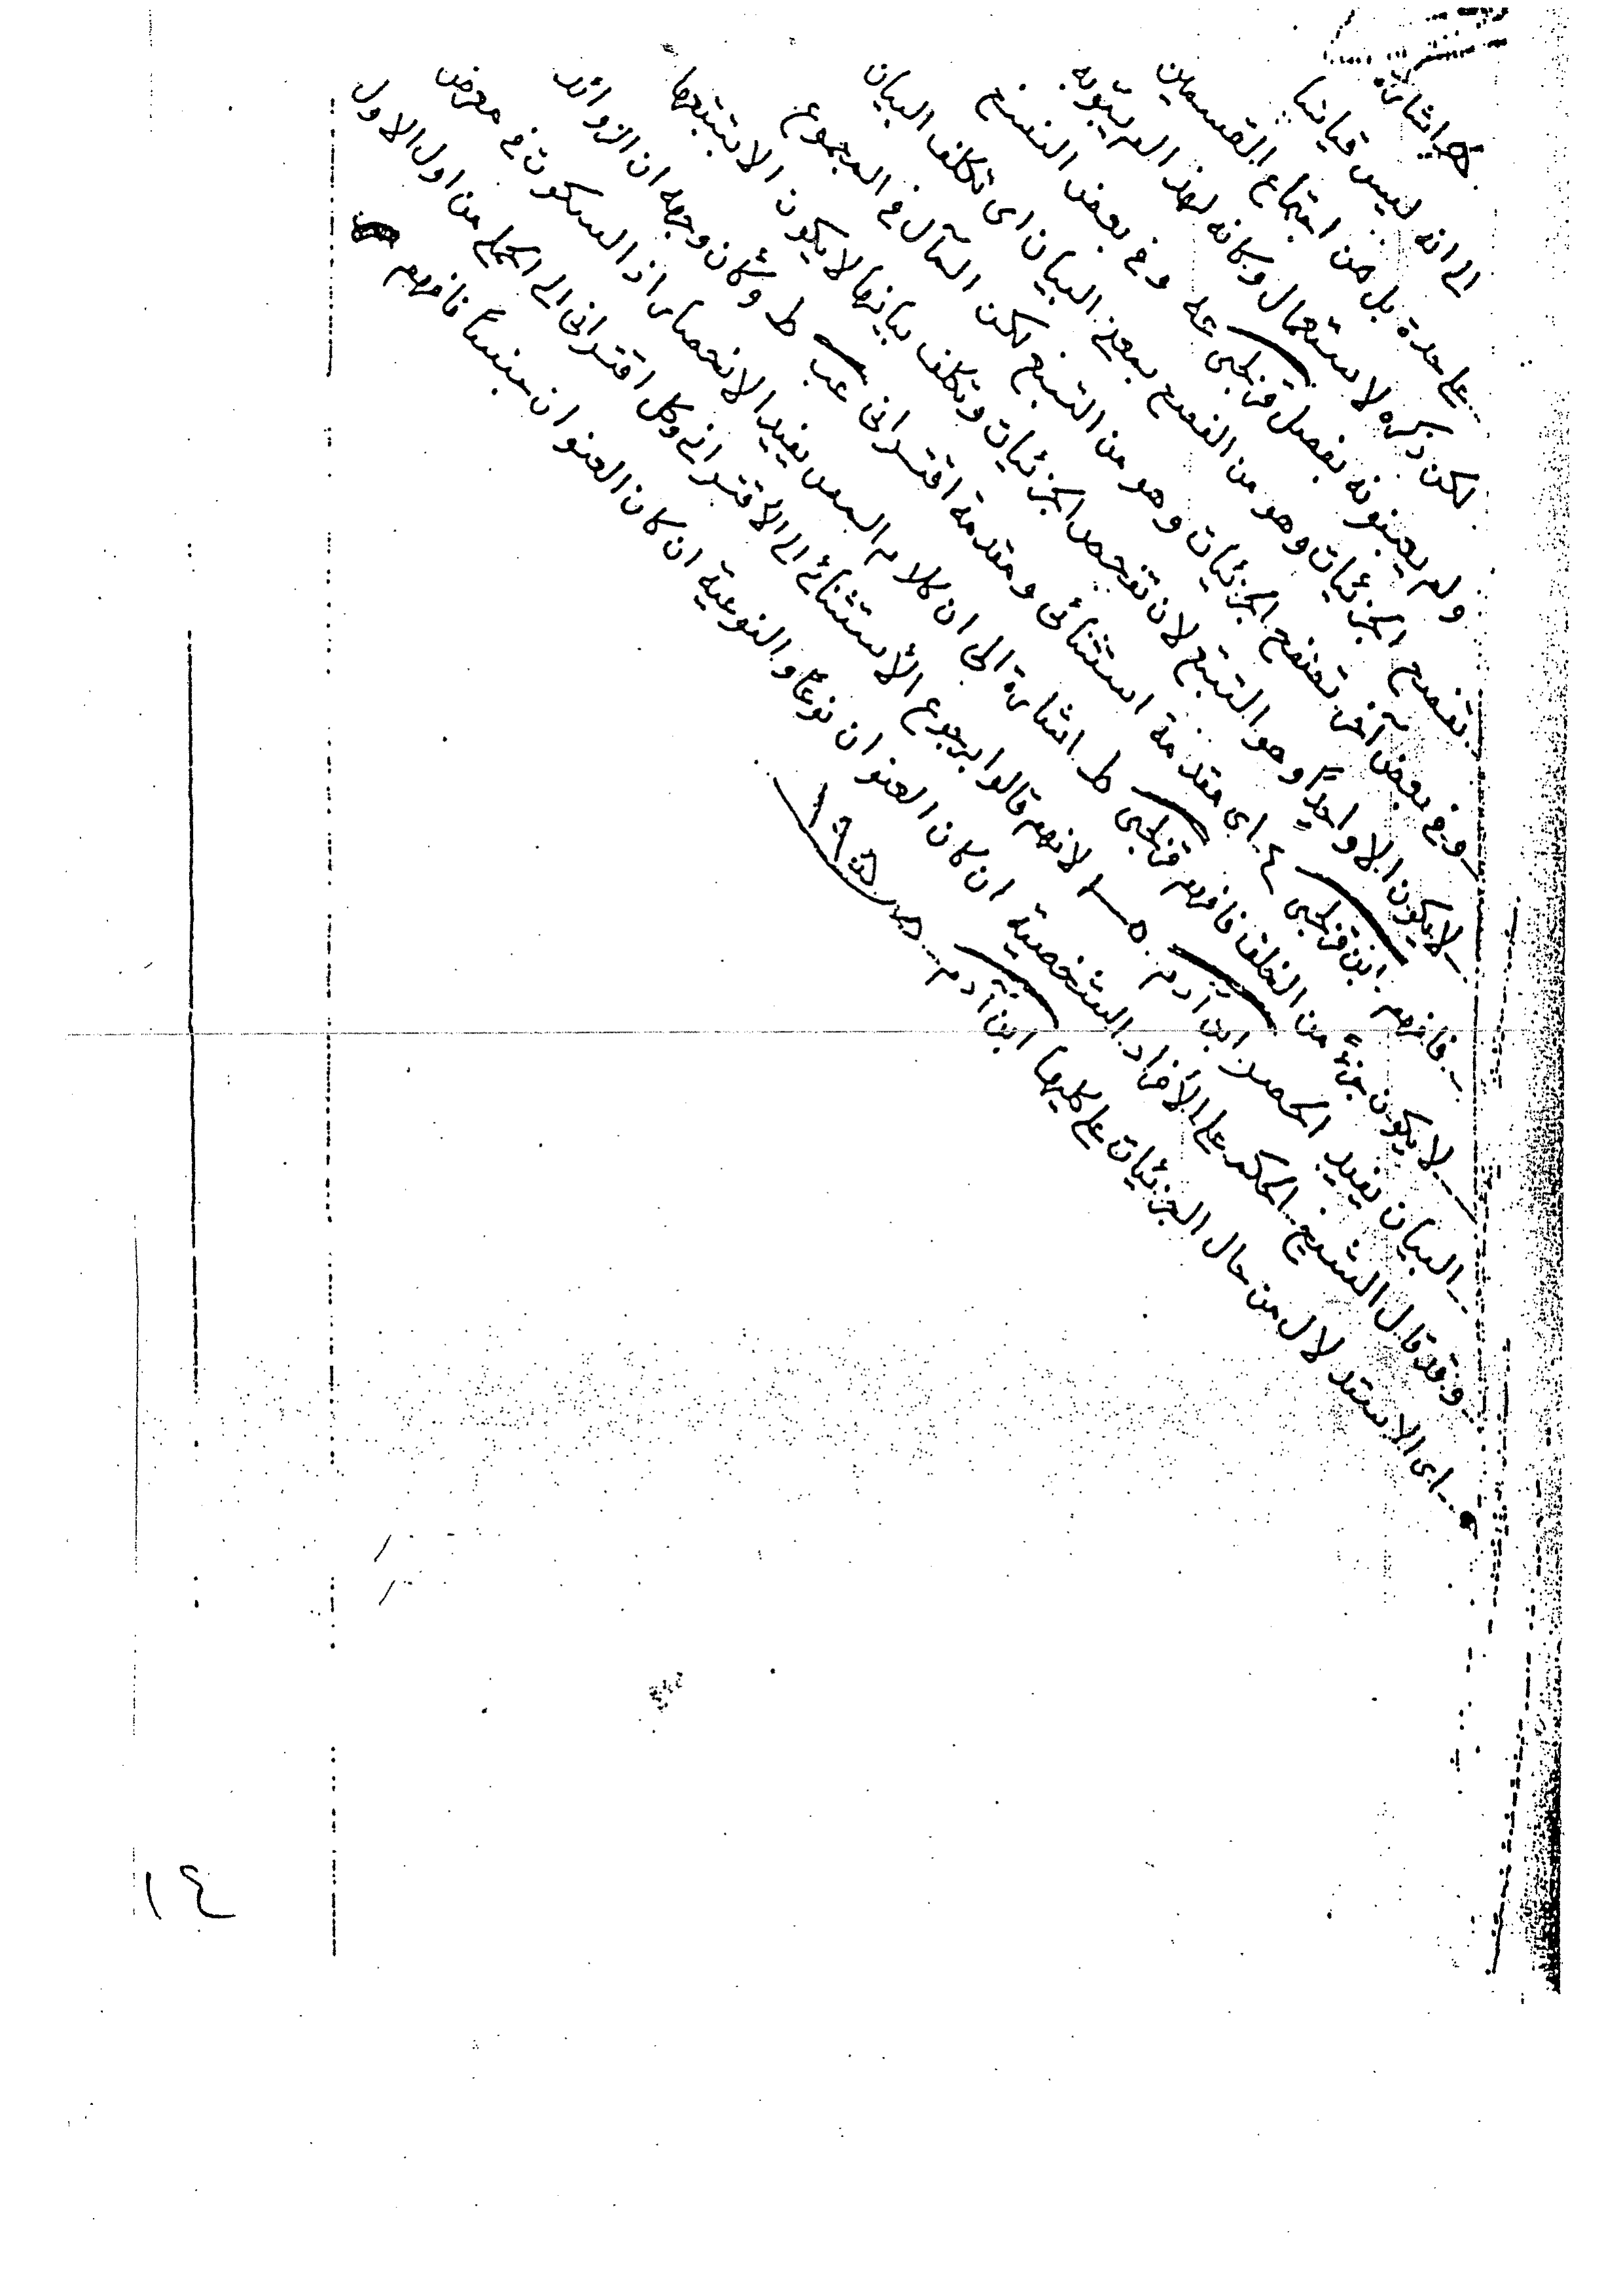 اشارة
الى انه ليس قياسا
على حدة بل من اجتماع القسمين
لكن ذكره لاستعمال وكانه لهذا لم يبوبه
ولم يعينونه بفصل قزلجى عه وفى بعض النسخ
بتصفح الجزئيات وهو من الفصح بمعنى البيان اى تكلف البيان
وفى بعض آخر تصفح الجزئيات وهو من التتبع لكن المآل فى المجموع
لايكون الا واحداً وهو التتبع لان تفحص الجزئيات وتكلف بيانها لايكون الا بتتبعها
فافهم ابن قزلجى ٤ اى مقدمة استثنائى ومقدمة اقترانى عب ط وكان وجهه ان الزوائد
لايكون جزءً من الخلف فافهم قزلجى ط اشارة الى ان كلام المص يفيد الانحصار اذ السكوت فى معرض
البيان يفيد الحصر ابن آدم ٥ لانهم قالوا برجوع الأستثنائى الى الأقترانى وكل اقترانى الى الحملى من اول الاول
وقد قال الشيخ الحكم على الأفراد الشخصية ان كان العنوان نوعاً والنوعية ان كان العنوان جنساً فافهم
اى الاستدلال من حال الجزئيات على كليها ابن آدم
١٤